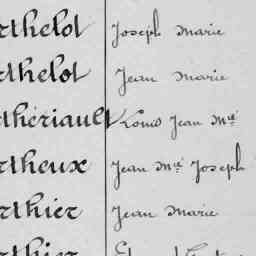 rthelot Joseph Marie
rthelot Jean Marie
rthériault Louis Jean Mie
rtheux Jean Mie Joseph
rthier Jean Marie
rthier